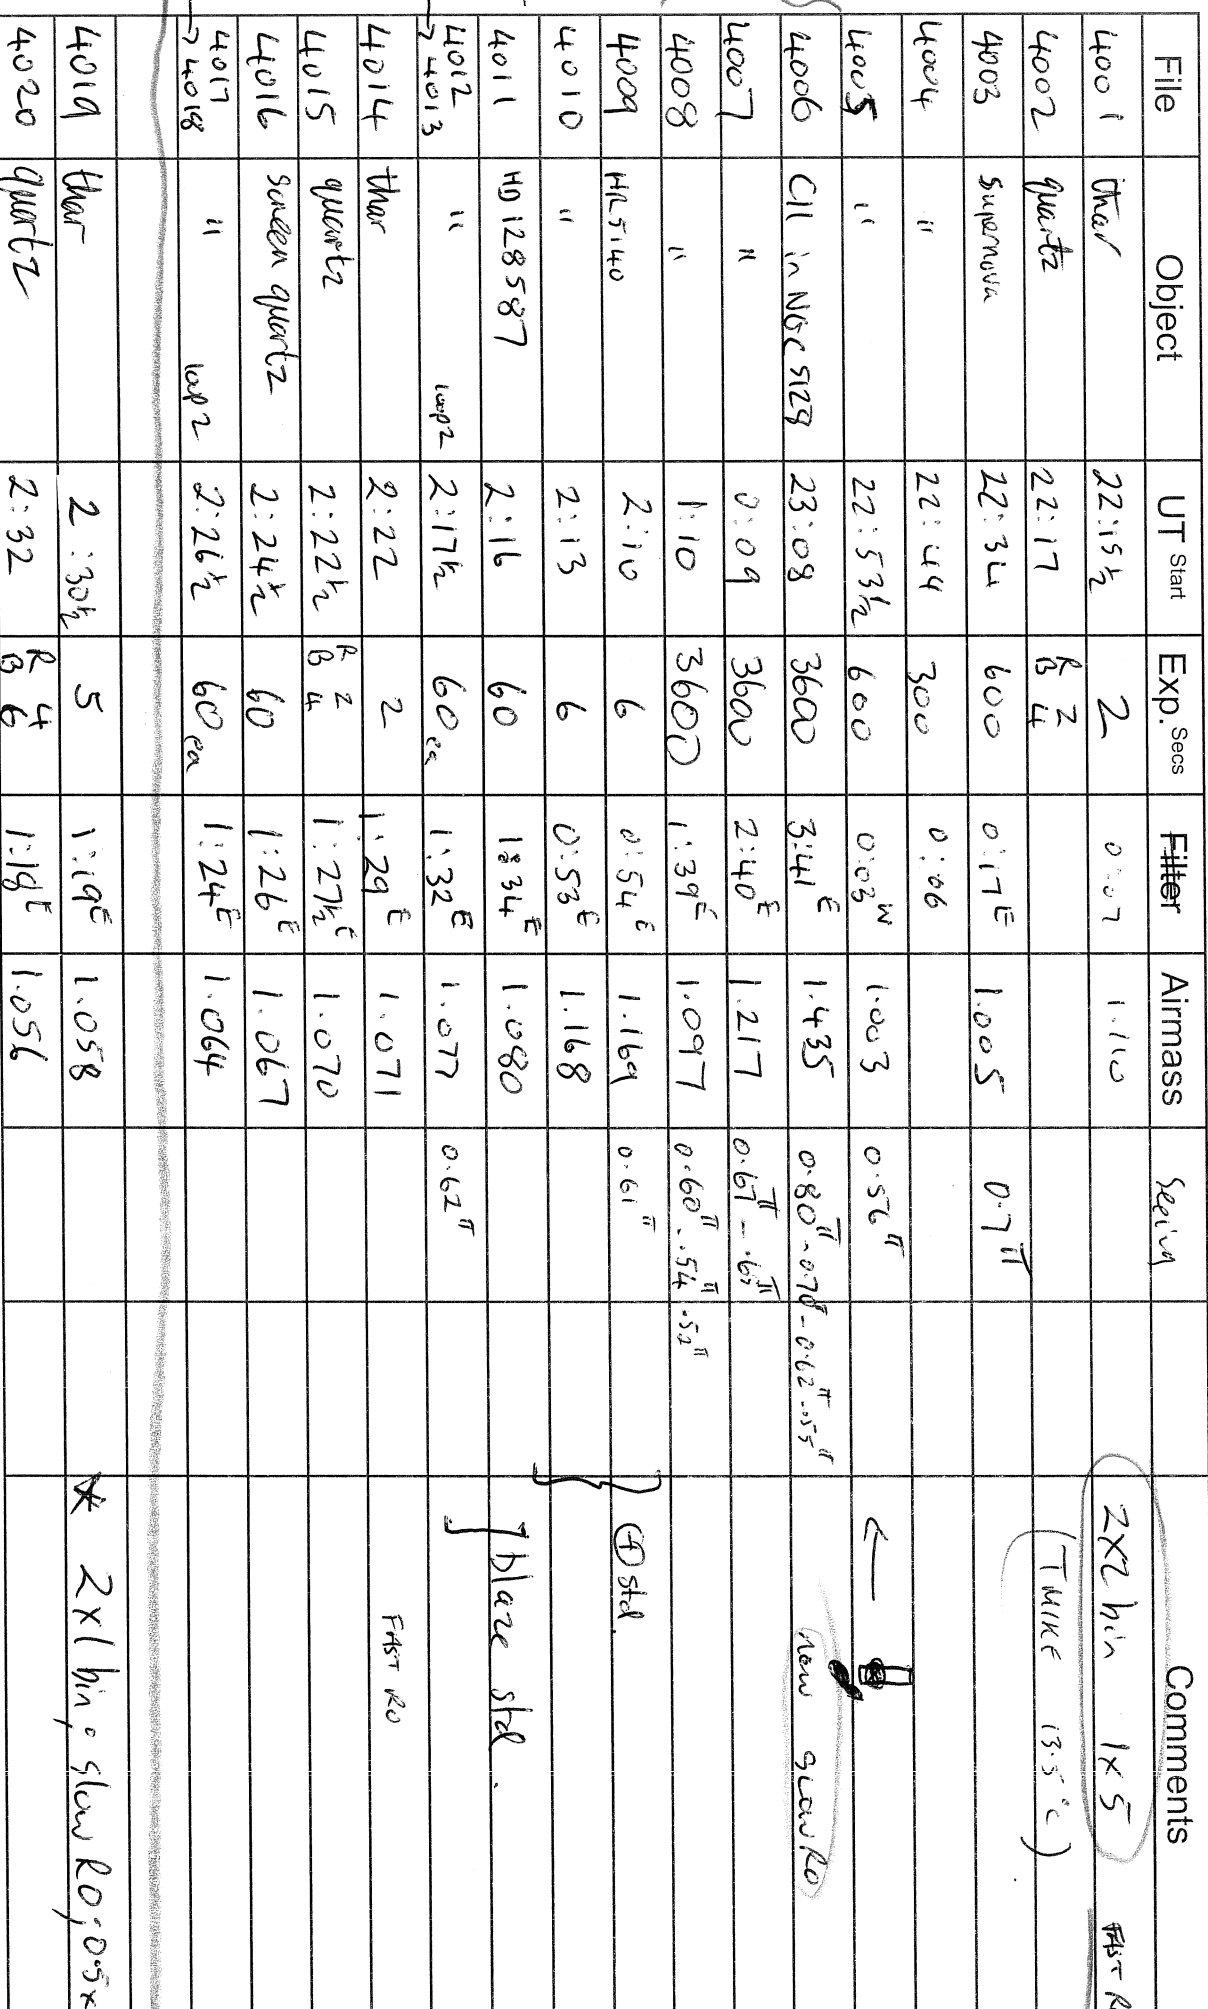 File Object UT Start Exp. Secs Filter Airmass Seeing Comments
4001 thar 22:15½ 2 0:07 1.110 2x2 bin 1x5 FAST R
4002 quartz 22:17 R 2 B 4 (TMIKE 13.5°C)
4003 supernova 22:34 600 0:17E 1.005 0.7"
4004 " 22:44 300 0:06
4005 " 22:53½ 600 0:03W 1.003 0.56" ←
4006 C11 in NGC 5129 23:08 3600 3:41E 1.435 0.80"-0.70-0.62"-.55" now slow RO
4007 " 0:09 3600 2:40E 1.217 0.67"-.67"
4008 " 1:10 3600 1:39E 1.097 0.60"-.54".52"
4009 HR5140 2:10 6 0:54E 1.169 0.61" std.
4010 " 2:13 6 0:53E 1.168
4011 HD128587 2:16 60 1:34E 1.080 blaze std.
4012 → 4013 " loop2 2:17½ 60 ea 1:32E 1.077 0.62"
4014 thar 2:22 2 1:29E 1.071 FAST RO
4015 quartz 2:22½ R 2 B 4 1:27½E 1.070
4016 screen quartz 2:24½ 60 1:26E 1.067
4017 → 4018 " loop2 2:26½ 60 ea 1:24E 1.064
4019 thar 2:30½ 5 1:19E 1.058 * 2x1 bin; slow RO; 0.5x
4020 quartz 2:32 R 4 B 6 1:18E 1.056